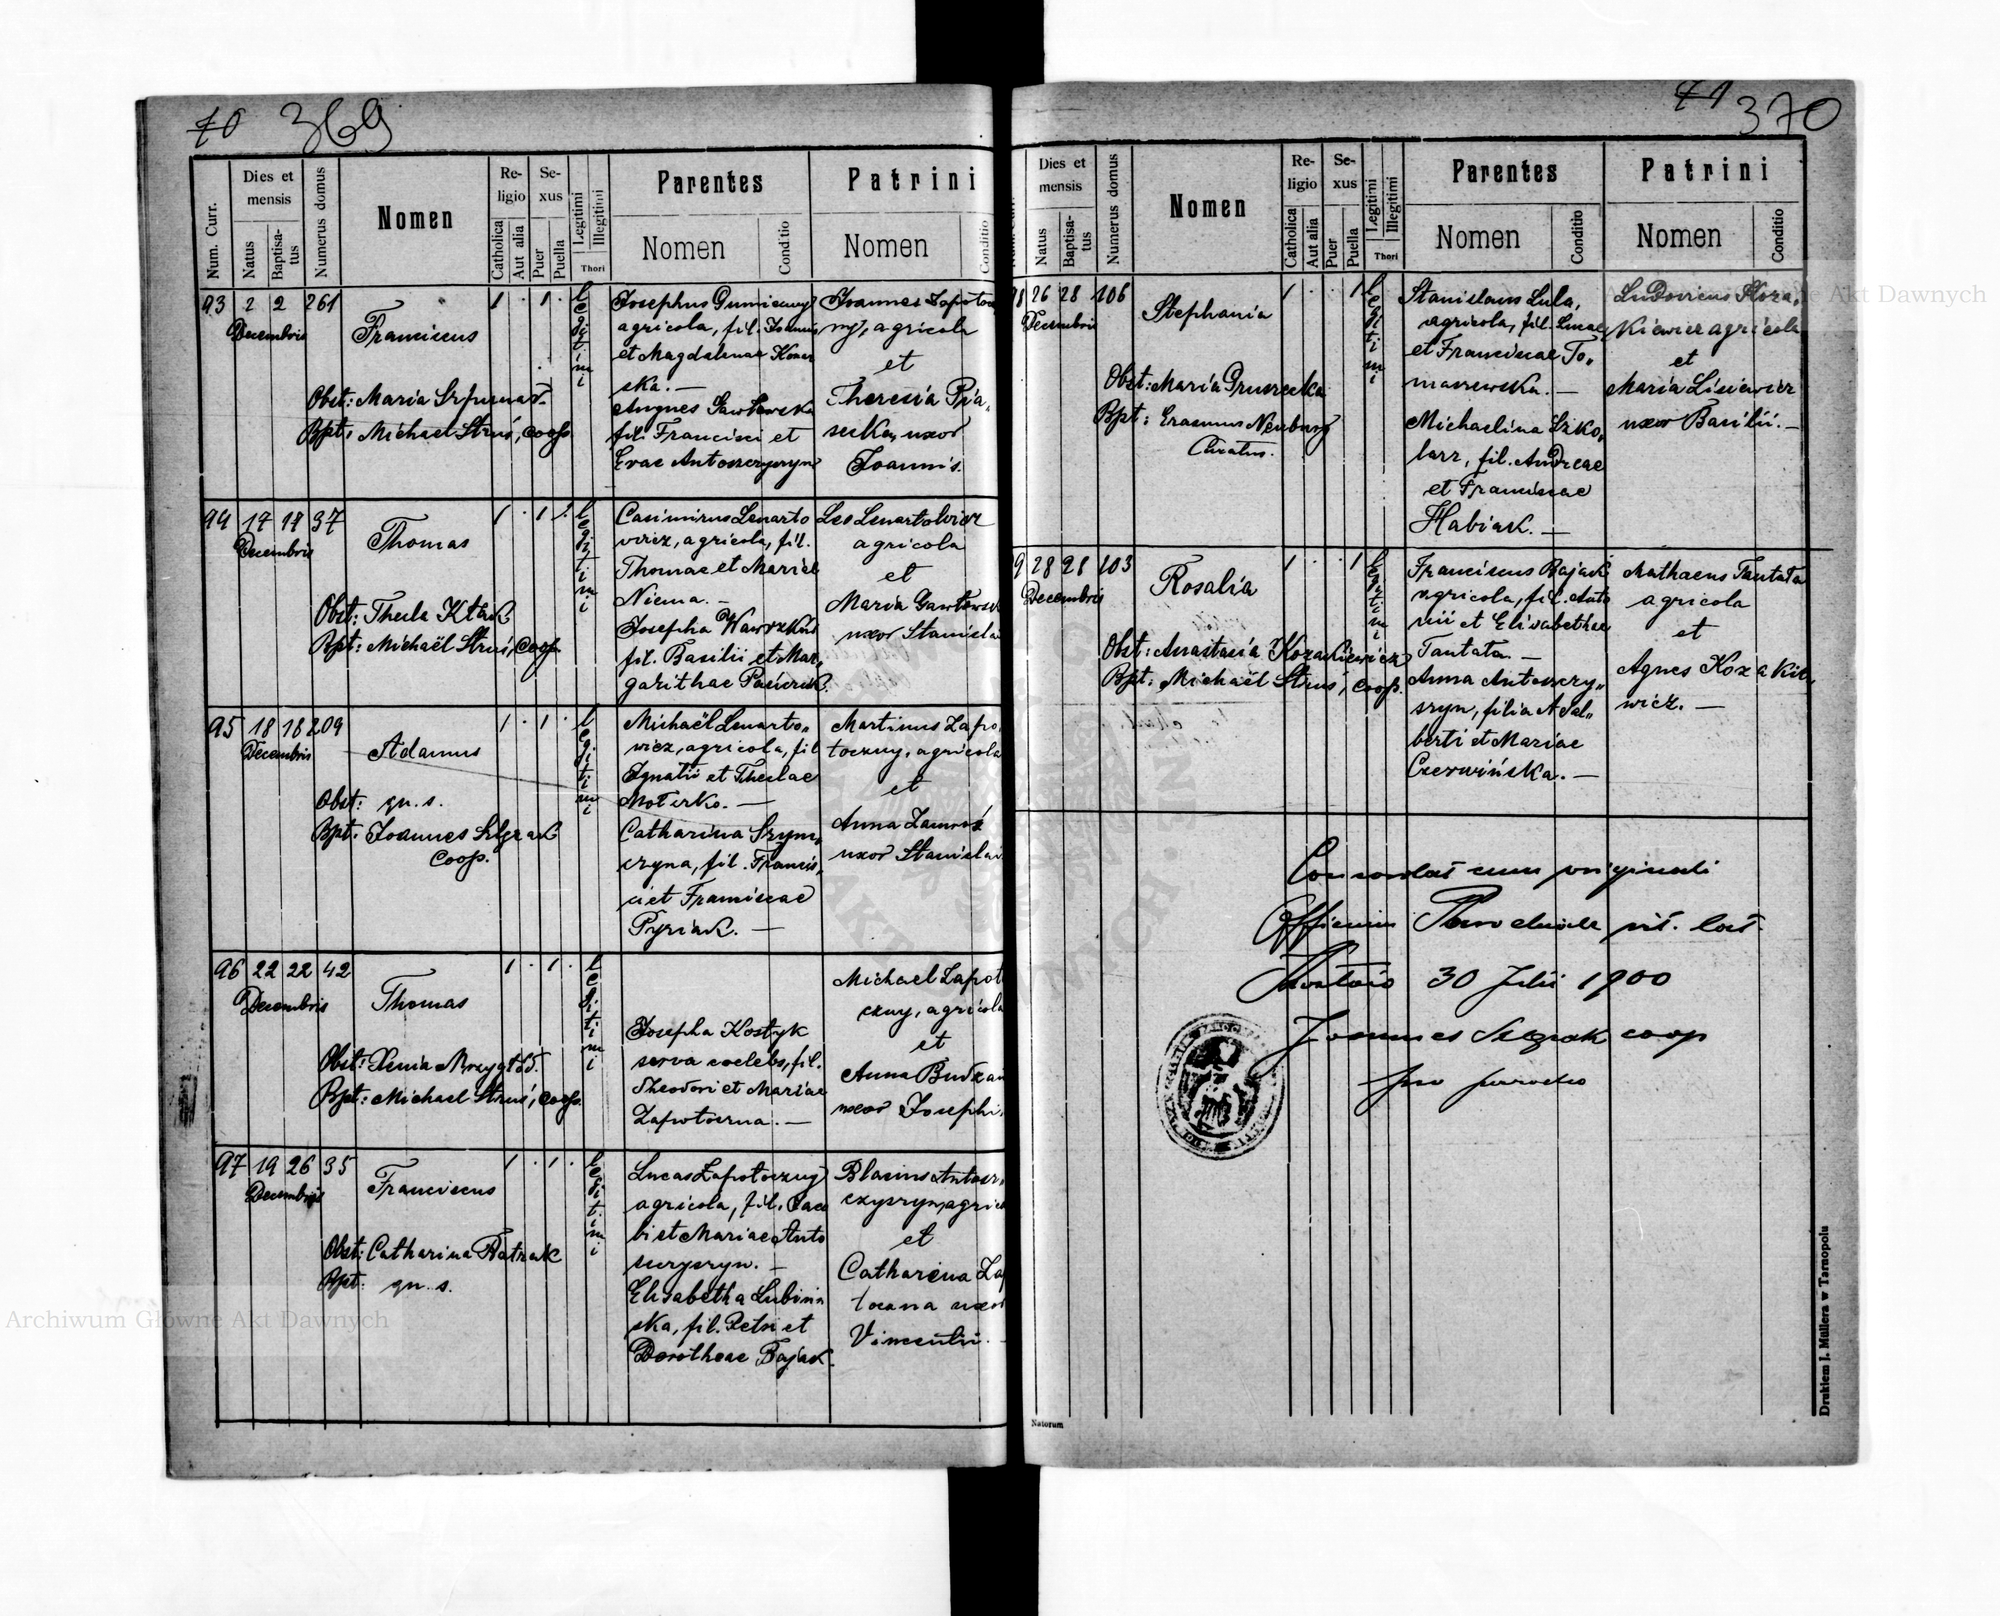 70 369
Num. Curr.
Dies et mensis
Natus
Baptisatus
Numerus domus
Nomen
Religio
Catholica
Aut alia
Sexus
Puer
Puella
Legitimi
Illegitimi
Thori
Parentes
Nomen
Conditio
Patrini
Nomen
Conditio
93 2 2 261
Decembris
Franciscus
1 . 1 .
legitimi
Obst: Maria
Bpt: Michael Struś, coop.
Josephus
agricola, fil. Joannis
et Magdalenae
ska. —
Agnes Gawłowska
fil. Francisci et
Evae Antoszczyszyn
Joannes Zapotocz
ny, agricola
et
Theresia
uxor
Joannis.
94 17 17 37
Decembris
Thomas
1 . 1 .
legitimi
Obst: Thecla Kłak
Bpt: Michaël Struś, coop.
Casimirus Lenarto
wicz, agricola, fil.
Thomae et Mariae
Niema. —
Josepha
fil. Basilii et Mar„
garithae
Leo Lenartowicz
agricola
et
Maria Gawłows
uxor Stanislai
95 18 18 209
Decembris
Adamus
1 . 1 .
legitimi
Obst: qu. s.
Bpt: Joannes
coop.
Michaël Lenarto„
wicz, agricola, fil
Ignatii et Theclae
Moterko. —
Catharina Szym„
czyna, fil. Francis„
ci et Franciscae
Pyriak. —
Martinus Zapo„
toczny, agricola
et
Anna
uxor Stanislai
96 22 22 42
Decembris
Thomas
1 . 1 .
legitimi
Obst: Xenia
Bpt: Michael Struś, coop.
Josepha Kostyk
serva coelebs, fil.
Theodori et Mariae
Zapotoczna. —
Michael Zapot
czny, agricola
et
Anna
uxor Josephi
97 19 26 35
Decembris
Franciscus
1 . 1 .
legitimi
Obst: Catharina Ratzak
Bpt: qu. s.
Lucas Zapotoczny
agricola, fil. Jaco
bi et Mariae Anto
szczyszyn. —
Elisabetha Lubiniń
ska, fil. Petri et
Dorotheae Bajak.
Blasius Antosz„
czyszyn, agricola
et
Catharina Zap
toczna uxor
Vincentii. —
71 370
Dies et mensis
Natus
Baptisatus
Numerus domus
Nomen
Religio
Catholica
Aut alia
Sexus
Puer
Puella
Legitimi
Illegitimi
Thori
Parentes
Nomen
Conditio
Patrini
Nomen
Conditio
8 26 28 106
Decembris
Stephania
1 . . 1
legitimi
Obst: Maria Gruszecka
Bpt: Erasmus Neuburg
Curatus.
Stanislaus Lula,
agricola, fil. Lucae
et Franciscae To„
maszewska. —
Michaelina Szko„
larz, fil. Andreae
et Franciscae
Habiak. —
Ludovicus Koza„
kiewicz agricola
et
Maria Lisiewicz
uxor Basilii. —
9 28 28 103
Decembris
Rosalia
1 . . 1
legitimi
Obst: Anastasia Kozakiewicz
Bpt: Michaël Struś, coop.
Franciscus Bajak
agricola, fil. Anto
nii et Elisabethae
Tantata. —
Anna Antoszczy„
szyn, filia Adal„
berti et Mariae
Czerwińska. —
Mathaeus Tantata
agricola
et
Agnes Kozakie„
wicz. —
Concordat cum originali
Officium Parochiale rit. lat.
30 Julii 1900
Joannes coop
pro parocho
Natorum
Drukiem J. Müllera w Tarnopolu
Archiwum Główne Akt Dawnych
Archiwum Główne Akt Dawnych